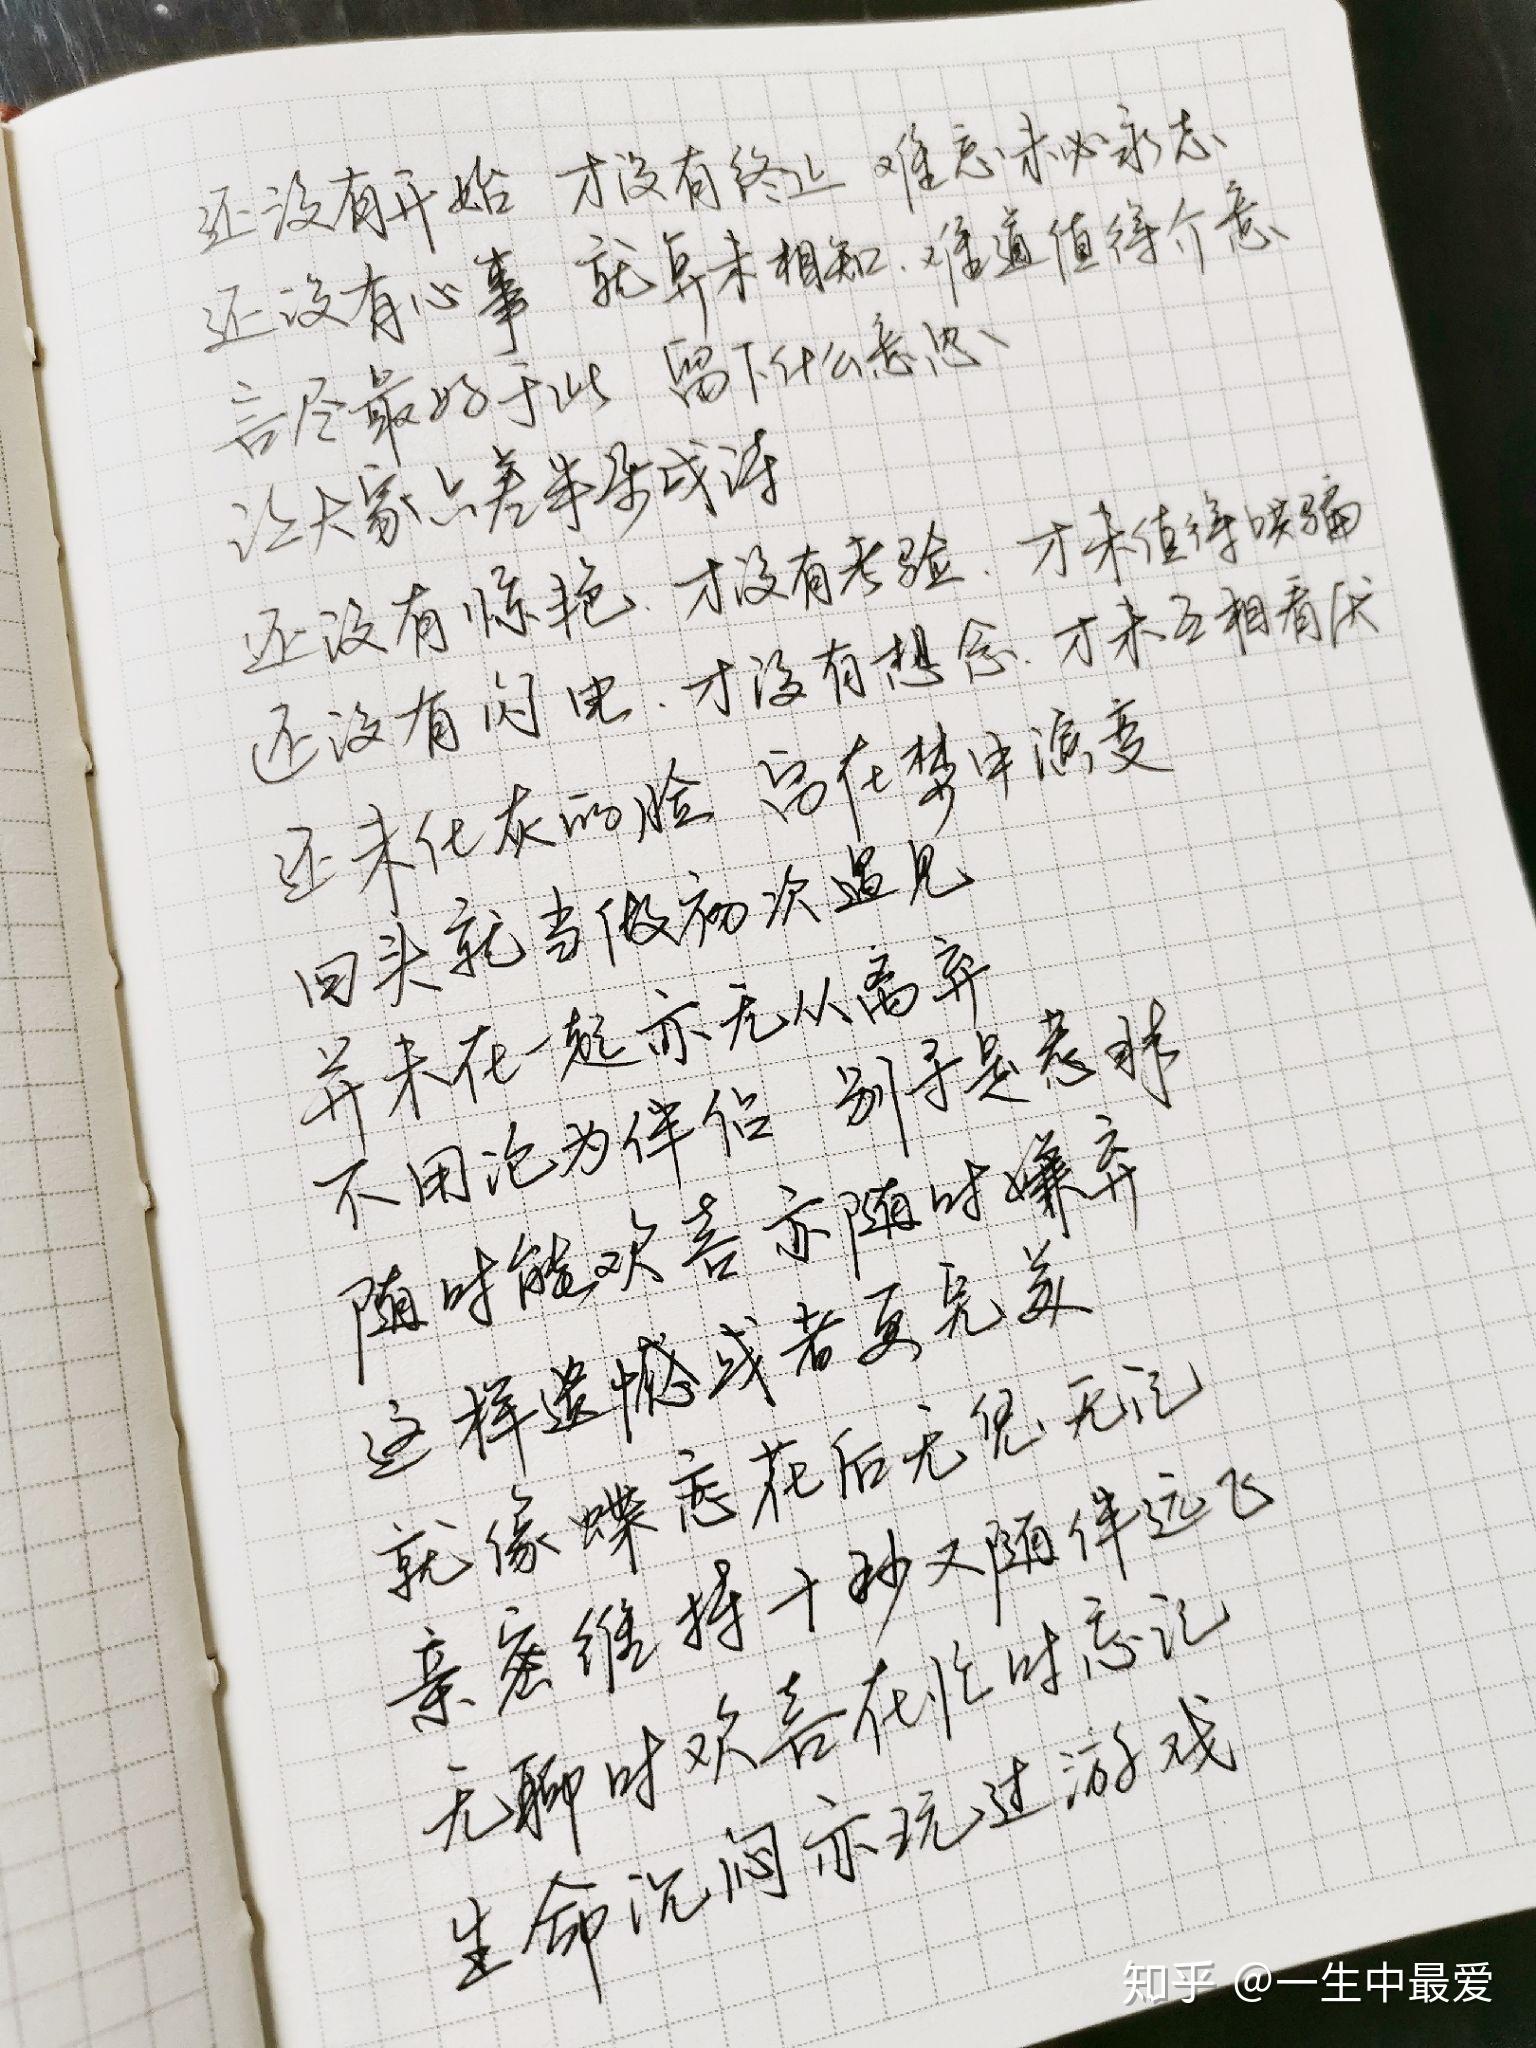 还没有开始 才没有终止 难忘未必永志
还没有心事 就算未相知、难道值得介意
言尽最好于此 留下什么意思、
让大家只差半朵成诗
还没有惊艳、才没有考验、才未值得哄骗
还没有闪电、才没有想念、才未互相看厌
还未化灰的脸 留在梦中演变
回头就当做初次遇见
并未在一起亦无从离弃
不用沦为伴侣 别寻是惹非
随时能欢喜亦随时嫌弃
这样遗憾或者更完美
就像蝶恋花后无凭无记
亲密维持十秒又随伴远飞
无聊时欢喜在忙时忘记
生命沉闷亦玩过游戏
知乎 @一生中最爱